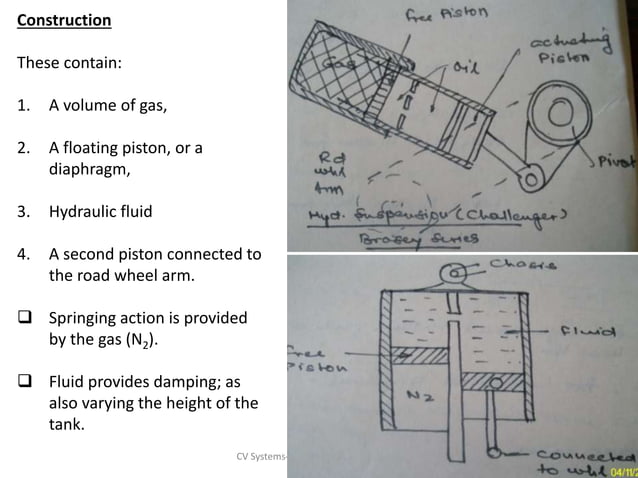 Construction
These contain:
1. A volume of gas,
2. A floating piston, or a
diaphragm,
3. Hydraulic fluid
4. A second piston connected to
the road wheel arm.
Springing action is provided
by the gas (N2).
Fluid provides damping; as
also varying the height of the
tank.
CV Systems-
Free Piston
Gas
Oil
actuating
Piston
Rd
whl
Arm
Pivot
Hyd. Suspension (Challenger)
Brasey Series
Chasis
Fluid
Free
Piston
N2
connected
to whl
04/11/2